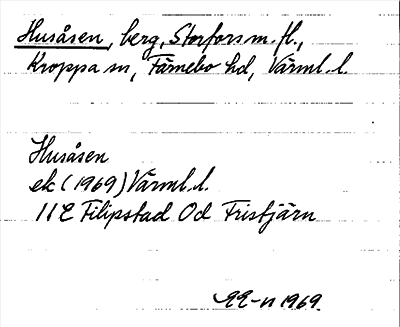 Husåsen, berg, Storfors m. fl.,
Kroppa sn, Färnebo hd, Värml. l.
Husåsen
ek (1969) Värml. l.
11E Filipstad Od Fristjärn
1969.